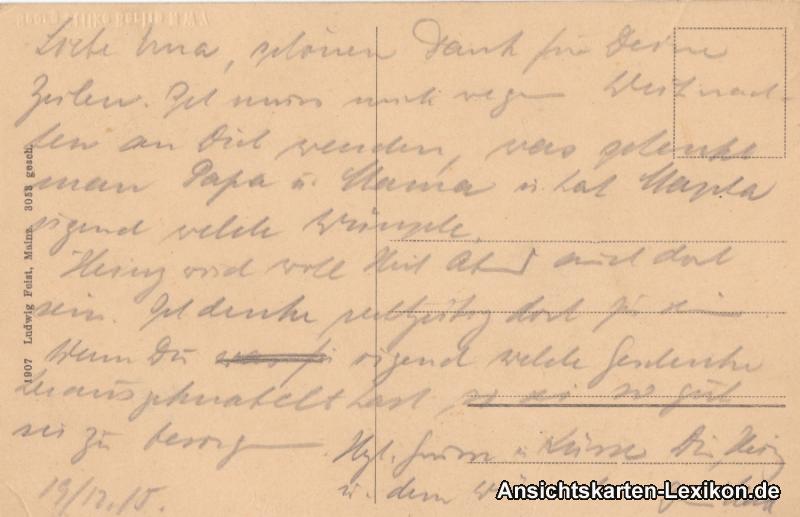 Liebe Erna, schönen Dank für Deine
Zeilen. Ich muss mich wegen Weihnach-
ten an Dich wenden, was schenkt
man Papa u. Mama u. hat Magda
irgend welche Wünsche.
Heinz wird wohl Heil. Abend auch dort
sein. Ich denke rechtzeitig dort zu sein
Wenn Du irgend welche Geschenke
herausgeknobelt hast so sei so gut
sie zu besorgen
Hzl. Grüsse u Küsse Dir, Heinz
u. dem
19/12.15.
1907 Ludwig Feist, Mainz. 3053 gesch.
Berlin N.W.7
Ansichtskarten-Lexikon.de